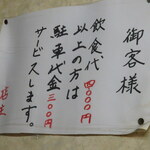 御客様
飲食代四〇〇〇円
以上の方は
駐車代金三〇〇円
サービスします。